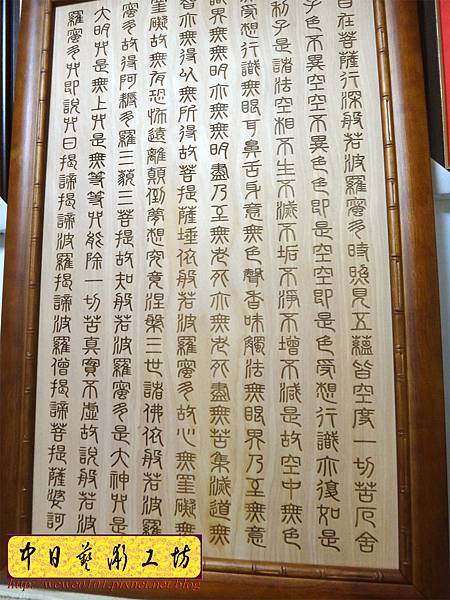 自在菩薩行深般若波羅蜜多時照見五蘊皆空度一切苦厄舍
子色不異空空不異色色即是空空即是色受想行識亦復如是
利子是諸法空相不生不滅不垢不淨不增不減是故空中無色
受想行識無眼耳鼻舌身意無色聲香味觸法無眼界乃至無意
界無無明亦無無明盡乃至無老死亦無老死盡無苦集滅道無
智亦無得以無所得故菩提薩埵依般若波羅蜜多故心無罣礙無
罣礙故無有恐怖遠離顛倒夢想究竟涅槃三世諸佛依般若波羅
蜜多故得阿耨多羅三藐三菩提故知般若波羅蜜多是大神咒是
大明咒是無上咒是無等等咒能除一切苦真實不虛故說般若波
羅蜜多咒即說咒曰揭諦揭諦波羅揭諦波羅僧揭諦菩提薩婆訶
中日藝彫工坊
http://wewe0161.pixnet.net/blog